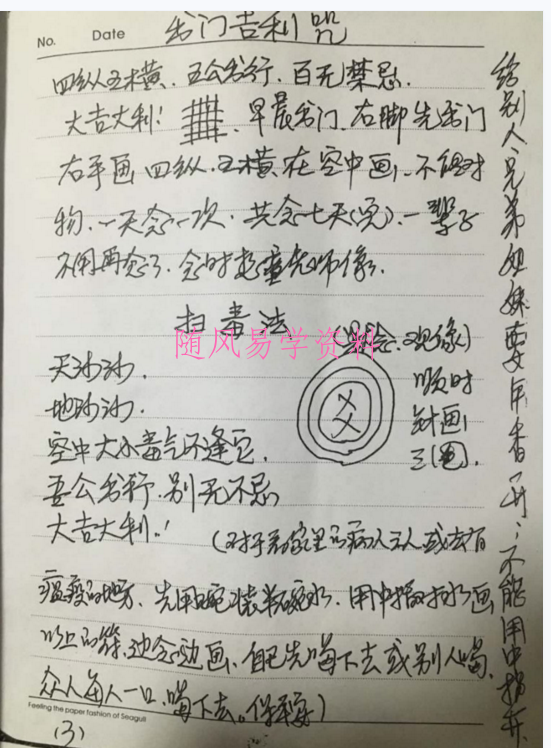 No.
Date
出门吉利咒
四纵五横,吾今出行,百无禁忌,
大吉大利! 早晨出门,右脚先出门
右手画四纵五横,在空中画,不能对
物,一天念一次,共念七天(完),一辈子
不用再念了,念时想童先师像,
扫毒法
随风易学资料
(默念,观像)
天沙沙,
地沙沙,
顺时
针画
三圈,
空中大小毒气不逢它,
吾今出行,别无不忌,
大吉大利!
(对于某家里有病人
或去有
瘟疫的地方,先用碗装半碗水,用中指对水画
以上的符,边念边画,自己先喝下去或别人喝,
众人每人一口,喝下去。保平安)
Feeling the paper fashion of Seagull
(3)
给别人兄弟姐妹要
香
不能用中指